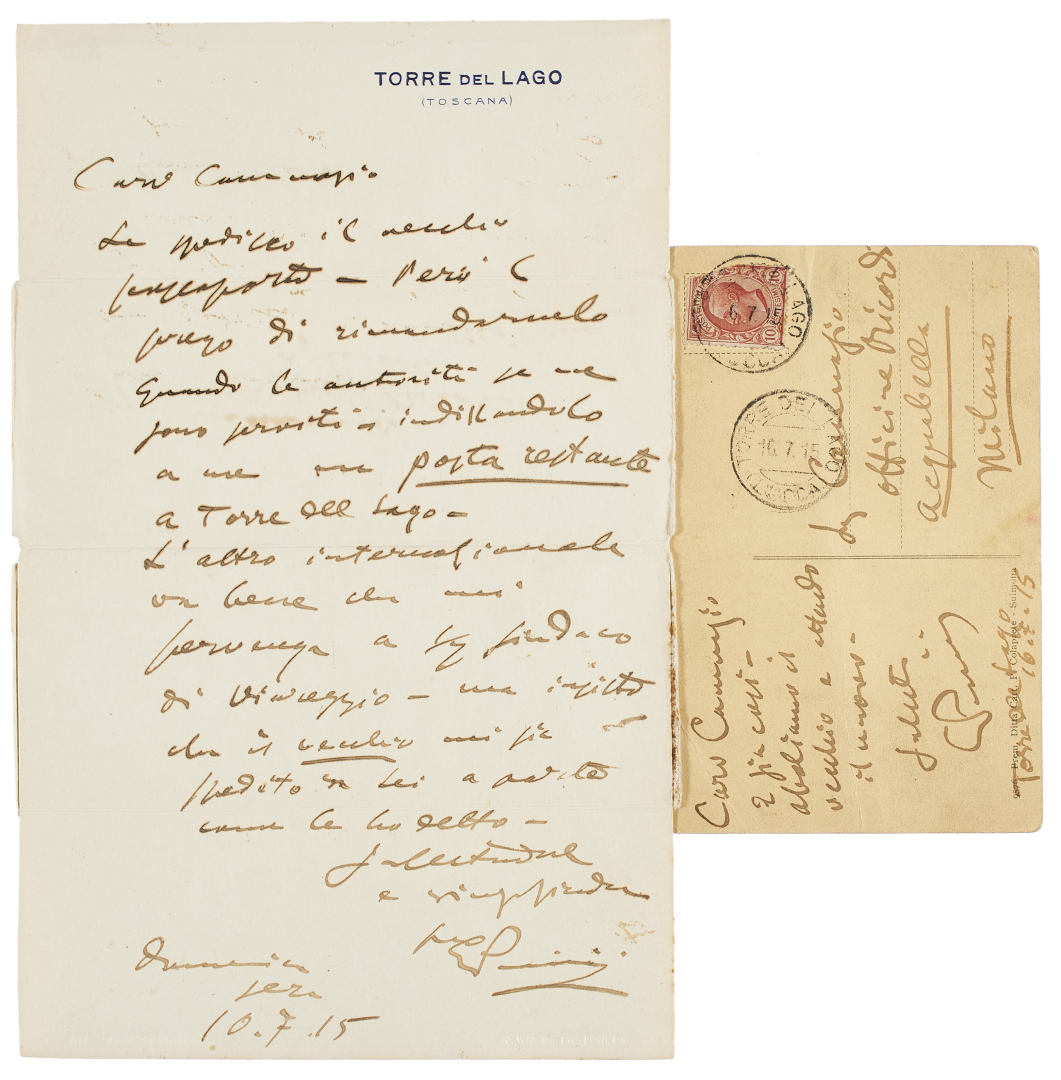 TORRE DEL LAGO
(TOSCANA)
Caro Cammagio
Le spedisco il vecchio
passaporto – Però L
prego di rimandarmelo
quando le autorità se ne
sono servite – indirizzandolo
a me in posta restante
a Torre del Lago –
L'altro internazionale
va bene che mi
pervenga a / sindaco
di Viareggio – ma insisto
che il vecchio mi sia
spedito da Lei a parte
come le ho detto –
salutandol
e ringraziandola
suo GPuccini
Domenica
sera
10.7.15
10
TORRE DEL LAGO (LUCCA)
16.7.15
Sig Cammagio
officine Ricordi
acquabella
Milano
Caro Cammagio
E sia così –
aboliamo il
vecchio e attendo
il nuovo –
saluti
GPuccini
Torre del Lago
16.7.15
Prem. Ditta Cav. P. Colaprete - Sulmona